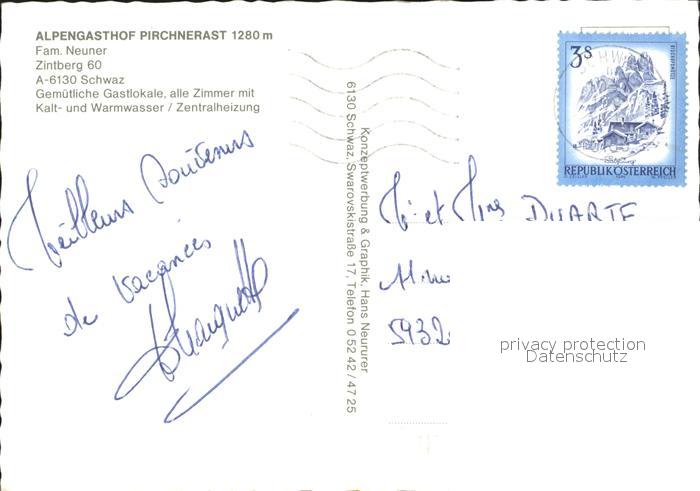 ALPENGASTHOF PIRCHNERAST 1280 m
Fam. Neuner
Zintberg 60
A-6130 Schwaz
Gemütliche Gastlokale, alle Zimmer mit
Kalt- und Warmwasser / Zentralheizung
Meilleurs Souvenirs
de Vacances
Konzeptwerbung & Graphik, Hans Neururer
6130 Schwaz, Swarovskistraße 17, Telefon 0 52 42 / 47 25
3 S
REPUBLIK ÖSTERREICH
et Mme DUARTE
5932
privacy protection
Datenschutz